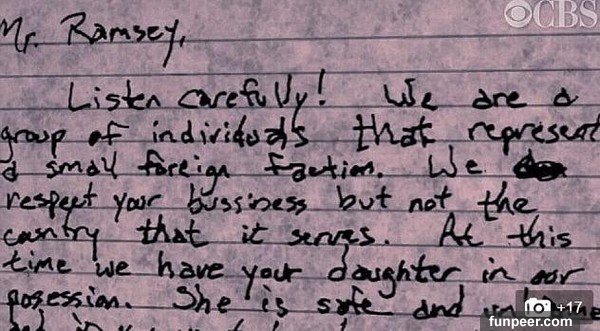 CBS
Mr. Ramsey,
Listen carefully! We are a
group of individuals that represent
a small foreign faction. We
respect your bussiness but not the
country that it serves. At this
time we have your daughter in our
posession. She is safe and
+17
funpeer.com